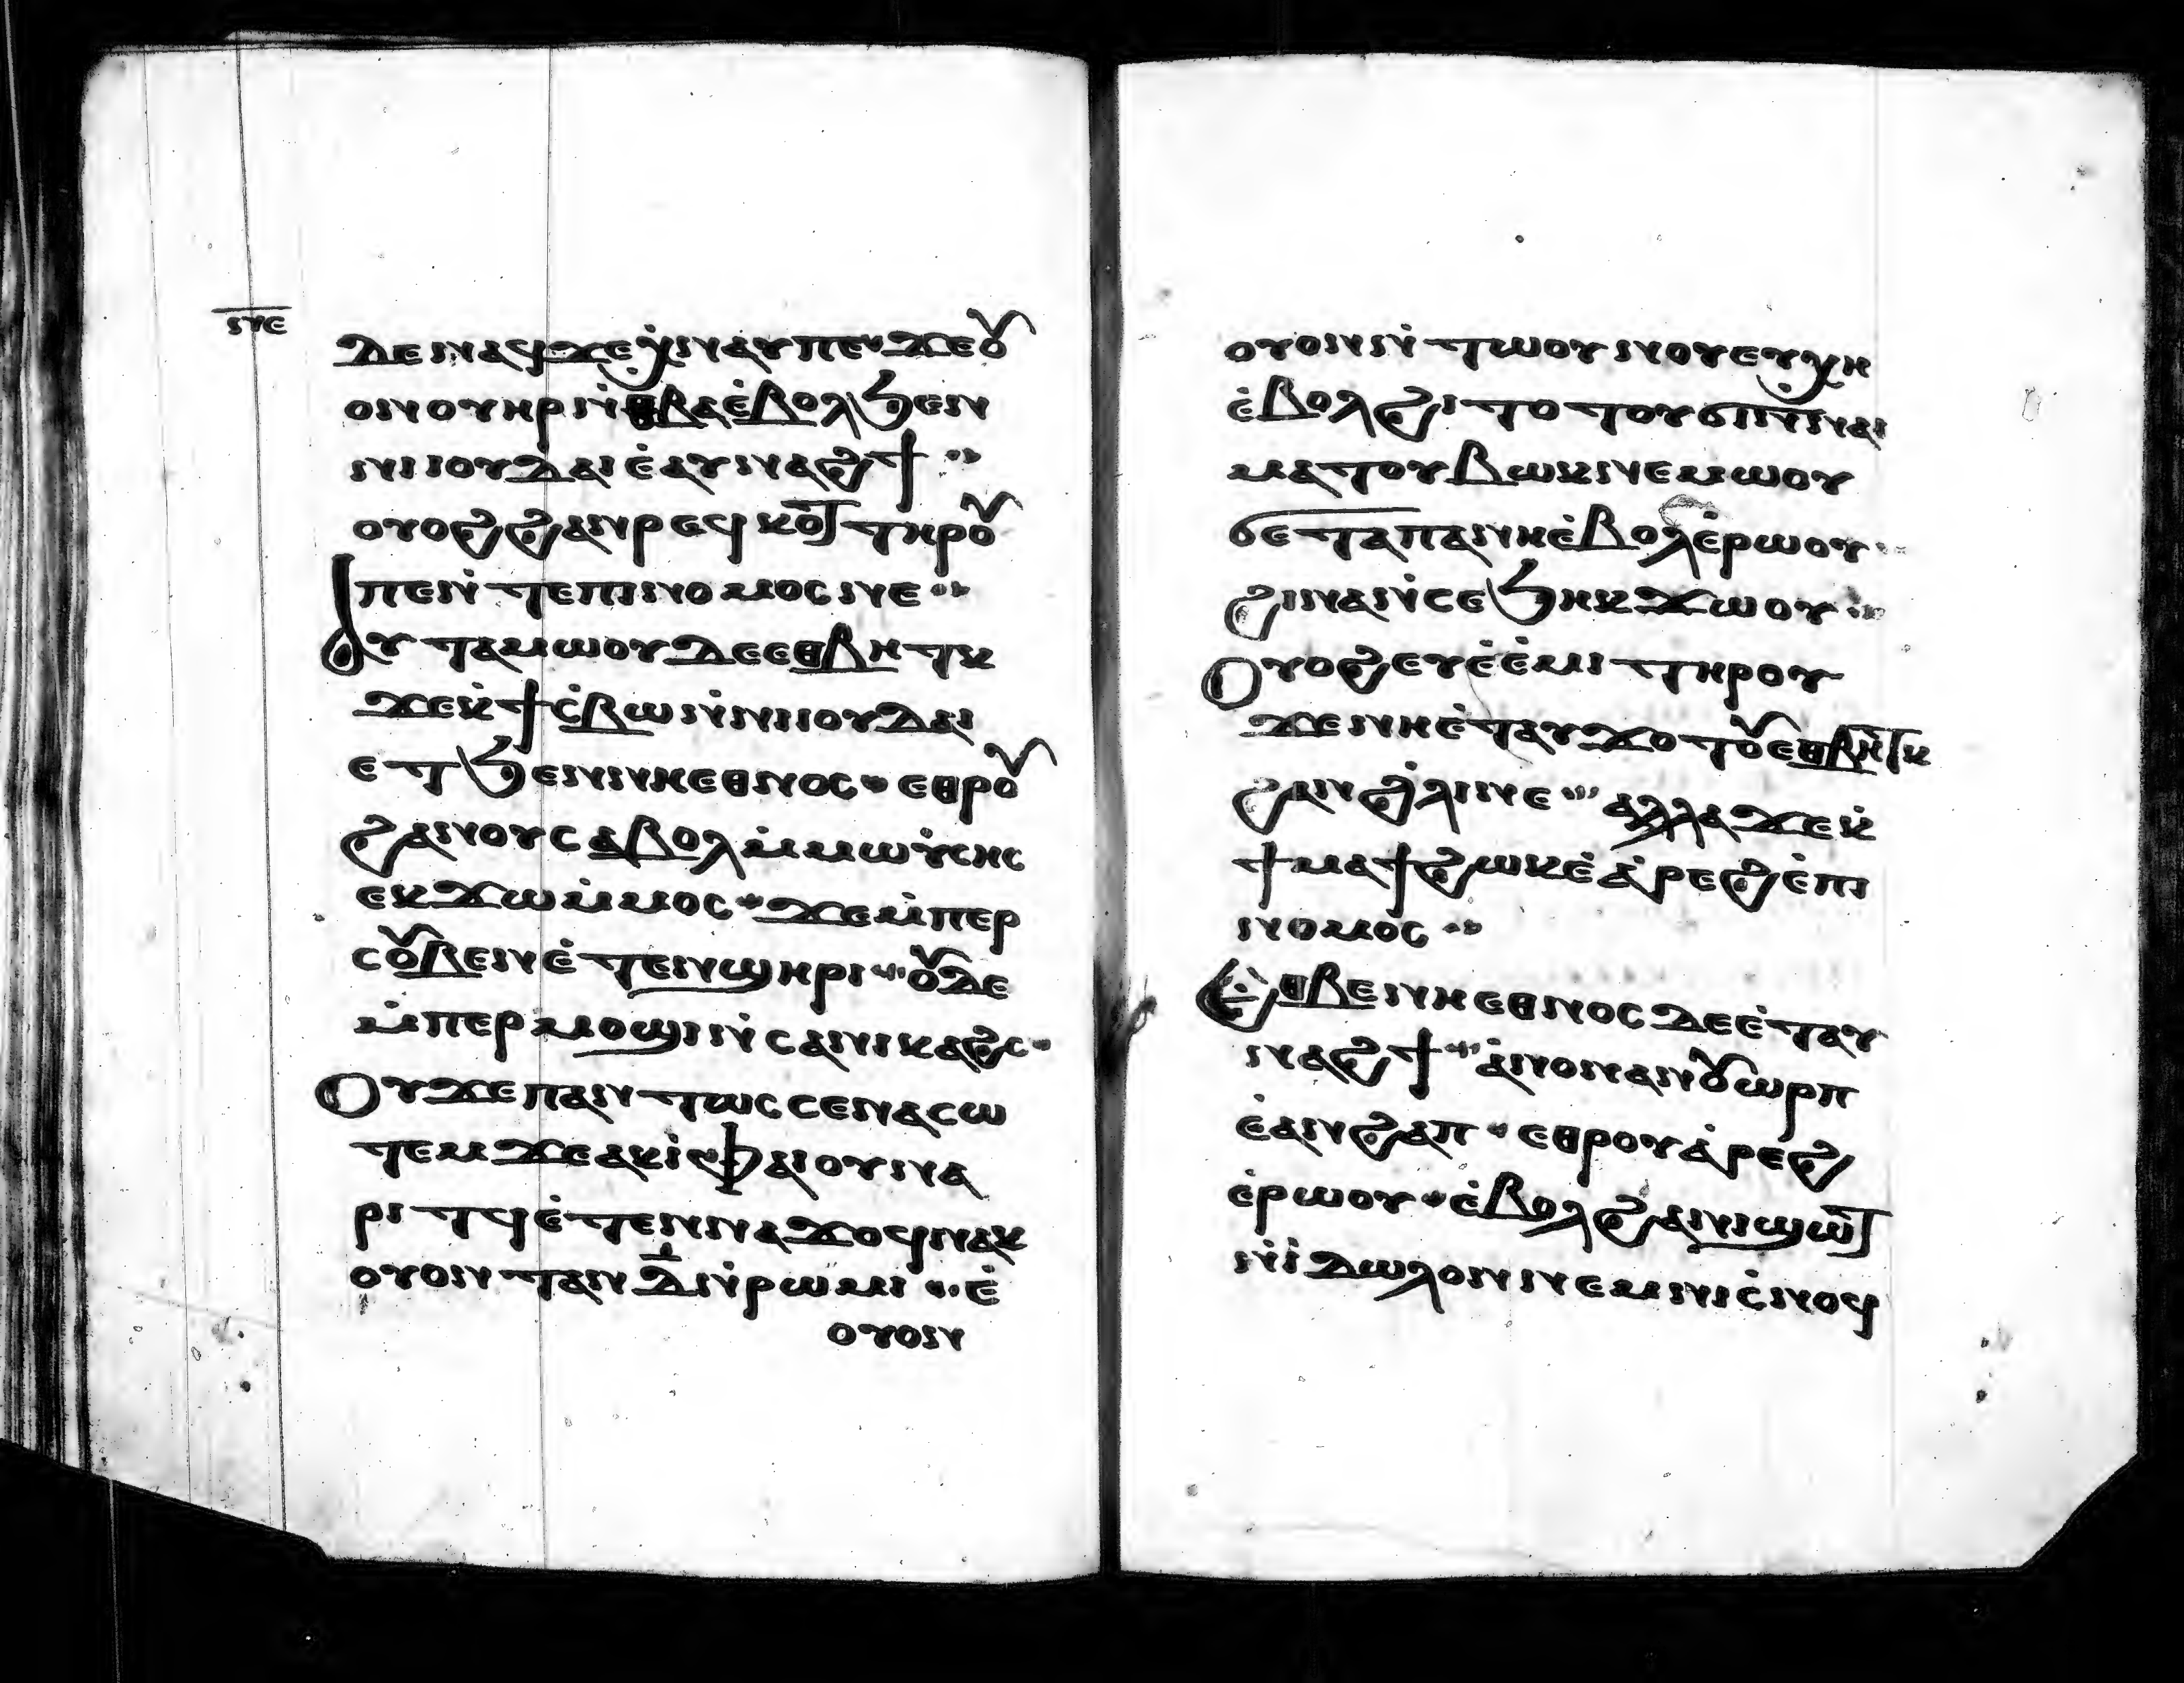 ⲛ̅ⲉ̅
ⲇⲉ ⲛⲁϥ ϫⲉ ⲭ̇ⲛⲁⲩ ⲡⲉⲛ ϫⲉ ⲟⲩ
ⲟⲛ ⲟⲩⲏⲣ ⲛ̇ⲑⲃⲁ ⲉ̇ⲃⲟⲗ ϧⲉⲛ
ⲛⲓⲓⲟⲩⲇⲁⲓ ⲉ̇ⲁⲩⲛⲁϩϯ ··
ⲟⲩⲟϩ ϩⲁⲛⲣⲉϥⲕⲟϯ ⲧⲏⲣⲟⲩ
ⲡⲉⲛ̇ⲧⲉ ⲡⲓⲛⲟⲙⲟⲥ ⲛⲉ ··
ⲁⲩⲧⲁⲙⲱⲟⲩ ⲇⲉ ⲉⲑⲃⲏⲧⲕ
ϫⲉ ⲕ̇ϯⲥ̇ⲃⲱ ⲛ̇ⲛⲓⲓⲟⲩⲇⲁⲓ
ⲉⲧϧⲉⲛ ⲛⲓⲕⲉⲉⲑⲛⲟⲥ · ⲉⲑⲣⲟⲩ
ϩⲁⲛⲟⲩ ⲥⲁⲃⲟⲗ ⲙ̇ⲙⲱⲩ̇ⲥⲏⲥ
ⲉⲕϫⲱ ⲙ̇ⲙⲟⲥ · ϫⲉ ⲙ̇ⲡⲉⲣ
ⲥⲟⲩⲃⲉ ⲛⲉ̇ⲧⲉⲛϣⲏⲣⲓ ·· ⲟⲩⲇⲉ
ⲙ̇ⲡⲉⲣⲙⲟϣⲓ ⲛ̇ⲥⲁ ⲛⲓⲕⲁϩⲥ ·
ⲟⲩϫⲉ ⲡⲁⲛⲧⲱⲥ ⲥⲉⲛⲁⲥⲱ
ⲧⲉⲙ ϫⲉ ⲁⲕⲓ̇ · ⲫⲁⲓ ⲟⲩⲛ ⲁ
ⲣⲓⲧϥ ⲉ̇ⲧⲉⲛⲛⲁϫⲟϥ ⲛⲁⲕ
ⲟⲩⲟⲛⲧⲁⲛ ⲇ̅ ⲛ̇ⲣⲱⲙⲓ ·· ⲉ̇
ⲟⲩⲟⲛ
ⲟⲩⲟⲛ ⲛ̇ⲧⲱⲟⲩ ⲛⲟⲩⲉⲩⲭ̇ⲏ
ⲉ̇ⲃⲟⲗϩⲓⲧⲟⲧⲟⲩ ϭⲓ ⲛ̇ⲛⲁⲓ
ⲙⲁⲧⲟⲩⲃⲱⲕ ⲛⲉⲙⲱⲟⲩ
ϭⲉ ⲧⲁⲡⲁⲛⲏ ⲉ̇ⲃⲟⲗ ⲉ̇ⲣⲱⲟⲩ ··
ϩⲓⲛⲁ ⲛ̇ⲥⲉϧⲏⲕ ϫⲱⲟⲩ ··
ⲟⲩⲟϩ ⲉⲩⲉ̇ⲉ̇ⲙⲓ ⲧⲏⲣⲟⲩ
ϫⲉ ⲛⲏ ⲉ̇ⲧⲁⲩϫⲟⲧⲟⲩ ⲉⲑⲃⲏⲧⲕ
ϩⲁⲛϩ̇ⲗⲓ ⲛⲉ ·· ⲁⲗⲗⲁ ϫⲉ ⲕ̇
ϯⲙⲁϯ ϩⲱⲕ ⲉ̇ⲁ̇ⲣⲉϩ ⲉ̇ⲡⲓ
ⲛⲟⲙⲟⲥ ··
ⲉ̇ⲑⲃⲉ ⲛⲓⲉⲑⲛⲟⲥ ⲇⲉ ⲉ̇ⲧⲁⲩ
ⲛⲁϩϯ ·· ⲁ̇ⲛⲟⲛ ⲁⲛⲟⲩⲱⲣⲡ
ⲉ̇ⲁⲛϩⲁⲡ · ⲉⲑⲣⲟⲩⲁ̇ⲣⲉϩ
ⲉ̇ⲣⲱⲟⲩ · ⲉ̇ⲃⲟⲗϩⲁ ⲛⲓϣⲱⲧ
ⲛ̇ⲓ̇ⲇⲱⲗⲟⲛ ⲛⲉⲙ ⲛⲓⲥ̇ⲛⲟϥ